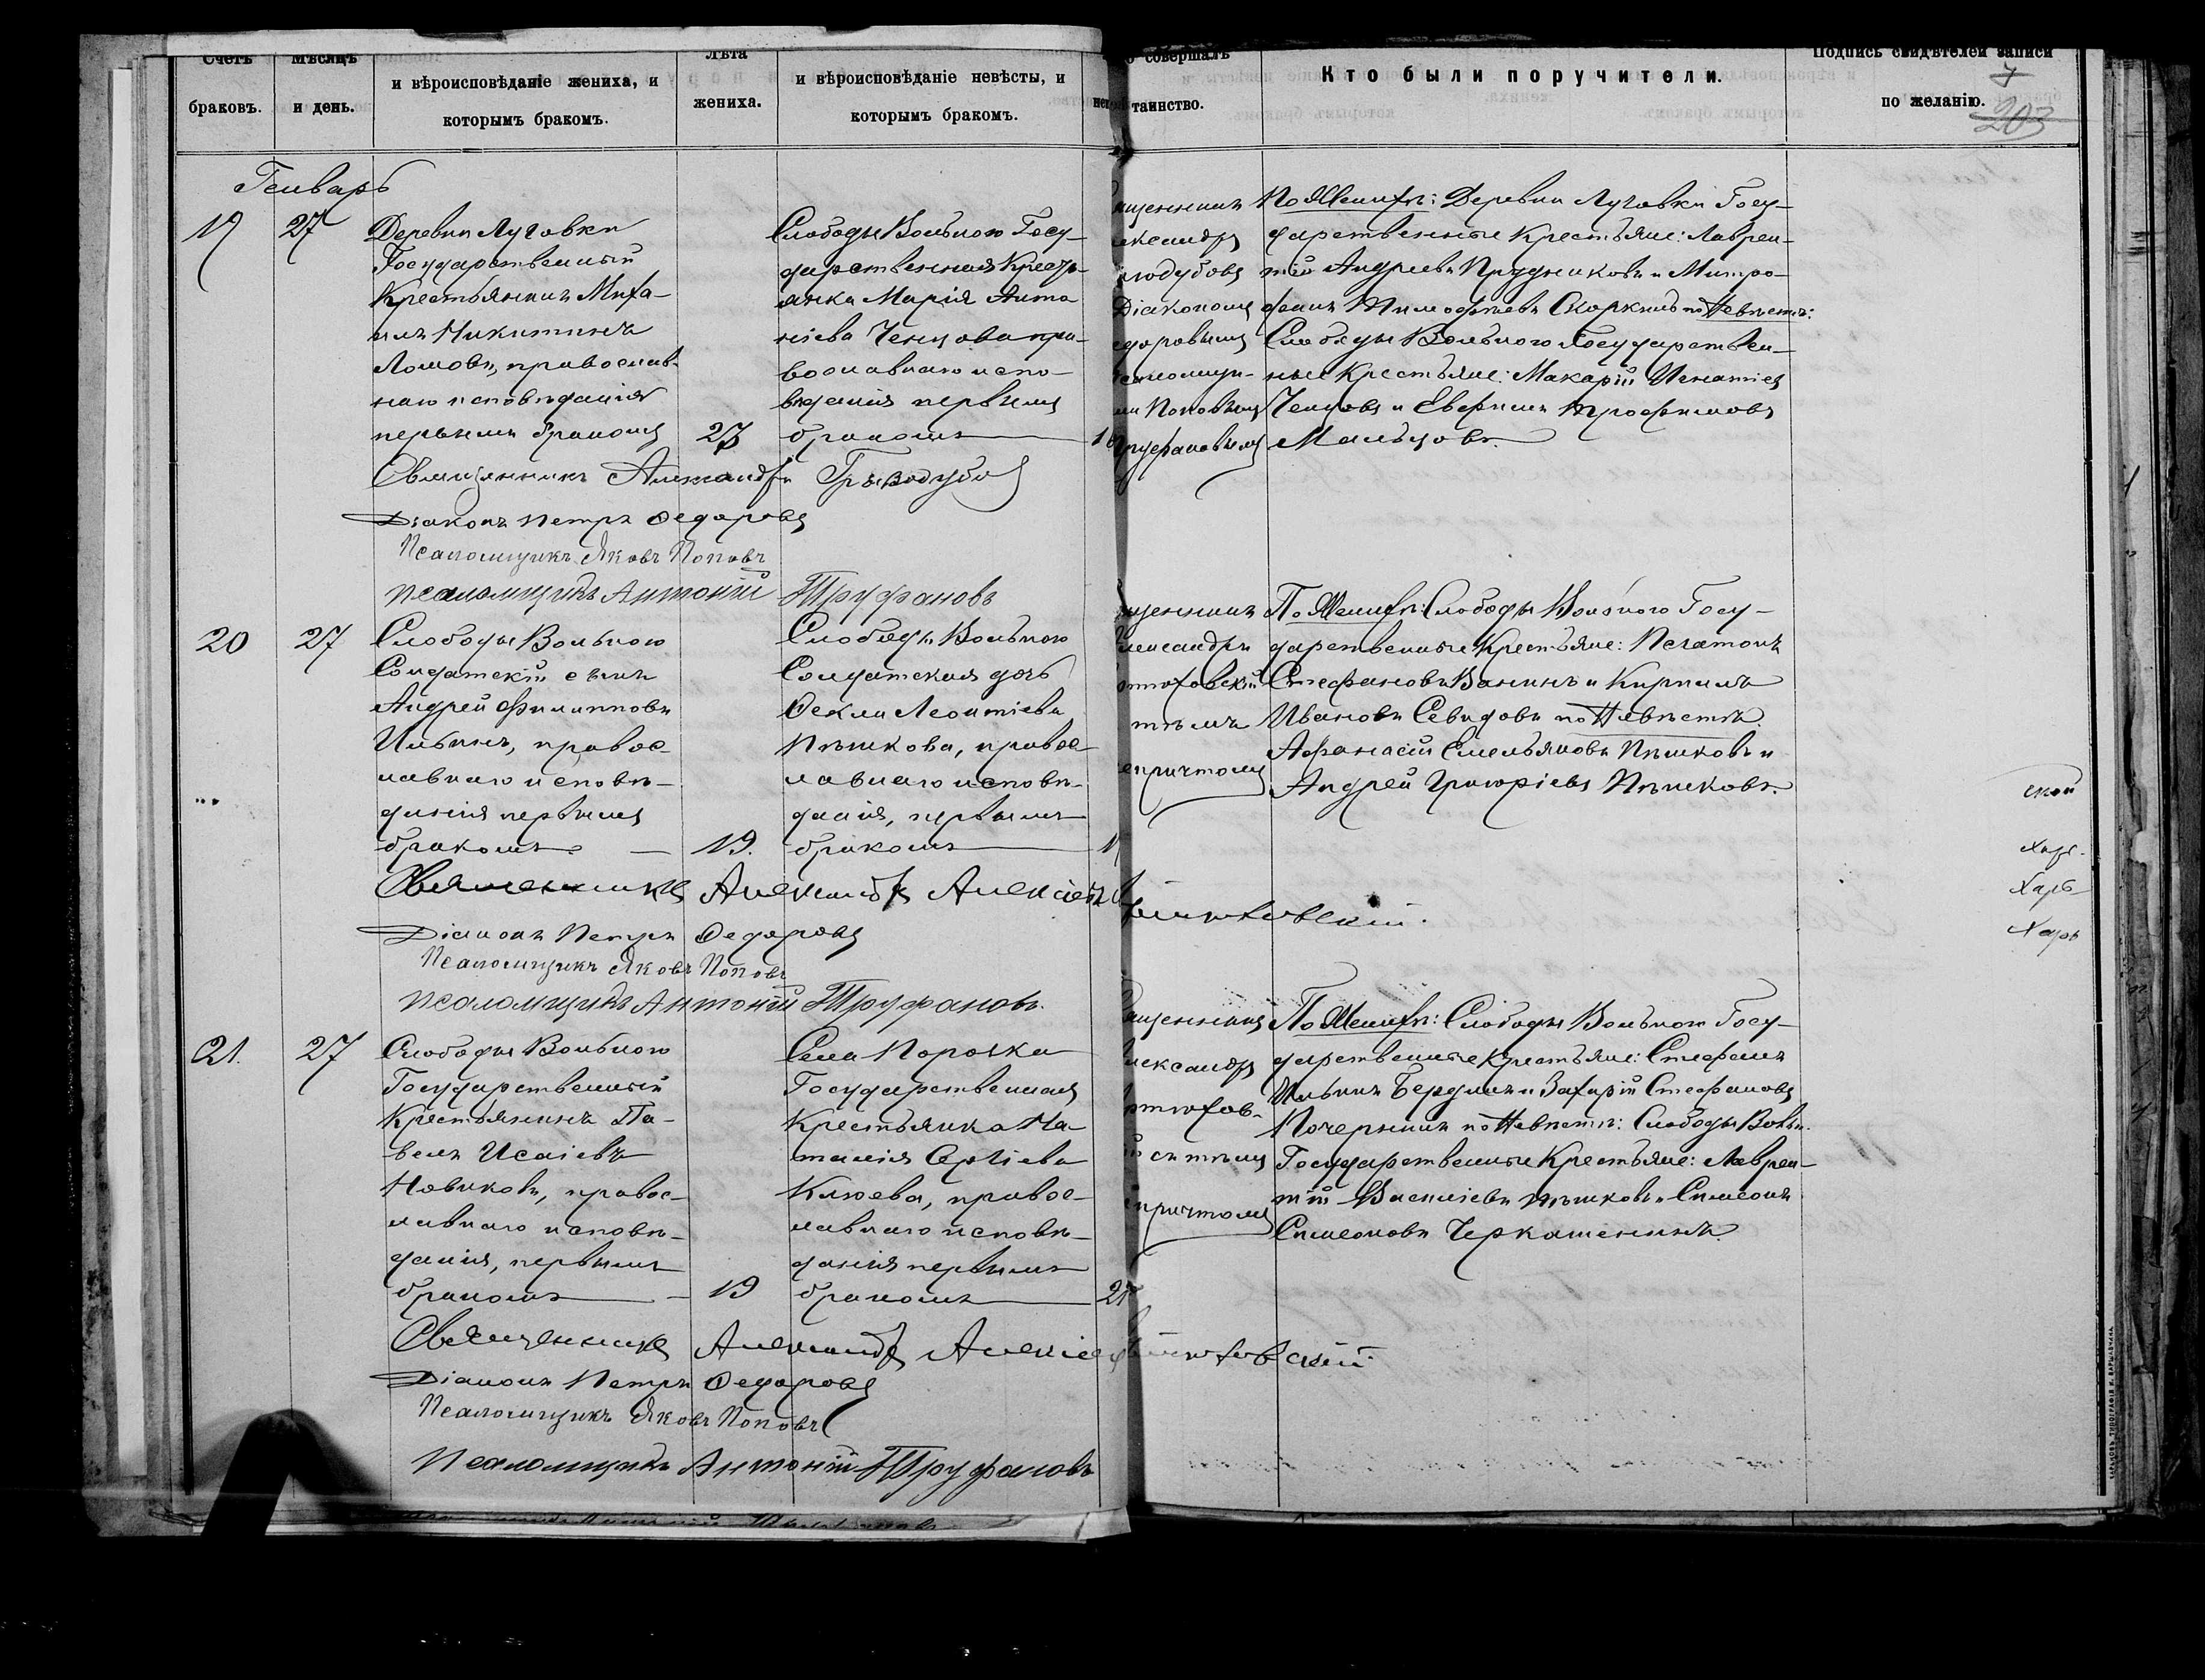 Счетъ
браковъ.
Мѣсяцъ
и день.
и вѣроисповѣданіе жениха, и
которымъ бракомъ.
Лѣта
жениха.
и вѣроисповѣданіе невѣсты, и
которымъ бракомъ.
совершалъ
таинство.
Кто были поручители.
Подпись свидѣтелей записи
по желанію.
7
203
Генварь
19
27
Деревни Луговки
Государственный
Крестьянинъ Миха-
илъ Никитинъ
Ломовъ, православ-
наго исповѣданія
первымъ бракомъ
27
Слободы Вольного Госу-
дарственная Кресть-
янка Марія Анто
ніева Ченцова пра-
вославнаго испо-
вѣданія первымъ
бракомъ
щенникъ
лександръ
водубовъ
Діакономъ
едоровымъ
псаломщи-
ми Поповымъ
Труфановымъ
По Женихѣ: Деревни Луговки Госу-
дарственные Крестьяне: Лаврен-
тій Андреевъ Прудниковъ и Митро-
фанъ Тимофѣевъ Скоркинъ по Невѣстѣ:
Слободы Вольного Государствен-
ные Крестьяне: Макарій Игнатіевъ
Ченцовъ и Евфимъ Трофимовъ
Мальцовъ.
Священникъ Александръ Гриводубовъ
Діаконъ Петръ Федоровъ
Псаломщикъ Яковъ Поповъ
Псаломщикъ Антоній Труфановъ
20
27
Слободы Вольного
Солдатскій сынъ
Андрей Филипповъ
Ильинъ, правос-
лавнаго исповѣ-
данія первымъ
бракомъ
19.
Слободы Вольного
Солдатская дочь
Фекла Леонтіева
Пѣшкова, правос-
лавнаго исповѣ-
данія, первымъ
бракомъ
щенникъ
лександръ
тюховскій
тѣмъ
же причтомъ
По Женихѣ: Слободы Вольного Госу-
дарственные Крестьяне: Платонъ
Стефановъ Ванинъ и Кириллъ
Ивановъ Севидовъ по Невѣстѣ.
Афанасій Емельяновъ Пѣшковъ и
Андрей Григоріевъ Пѣшковъ.
ской
Харь
Харь
Харь
Священникъ Александръ Алексіевъ
Діаконъ Петръ Федоровъ
Псаломщикъ Яковъ Поповъ
Псаломщикъ Антоній Труфановъ.
21.
27
Слободы Вольного
Государственный
Крестьянинъ Па-
велъ Исаіевъ
Новиковъ, правос-
лавнаго исповѣ-
данія, первымъ
бракомъ
19
Села Порозка
Государственная
Крестьянка На-
талія Сергіева
Клюева, правос-
лавнаго исповѣ-
данія первымъ
бракомъ
21
щенникъ
лександръ
тюхов-
й съ тѣмъ
же причтомъ
По Женихѣ: Слободы Вольного Госу-
дарственные Крестьяне: Стефанъ
Ильинъ Бердинъ и Захарій Стефановъ
Почернинъ по Невѣстѣ: Слободы Вольн.
Государственные Крестьяне: Лаврен-
тій Василіевъ Пѣшковъ и Симеонъ
Симеоновъ Черкашенинъ.
Священникъ Александръ Алексіевъ
Діаконъ Петръ Федоровъ
Псаломщикъ Яковъ Поповъ
Псаломщикъ Антоній Труфановъ